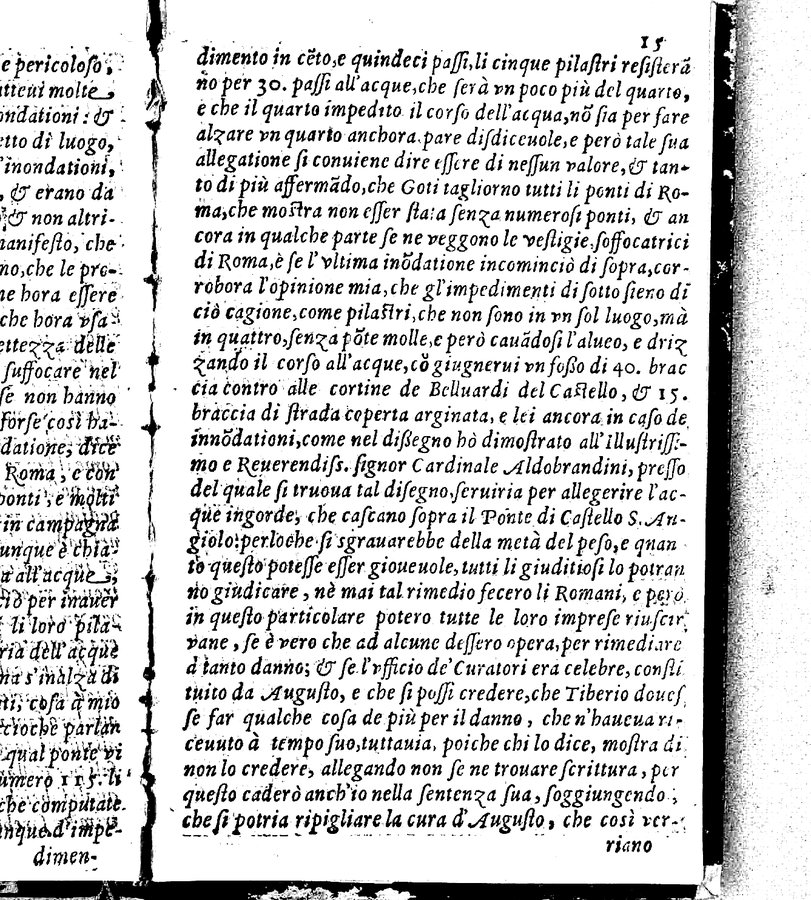 e pericoloso,
atteui molte
ondationi: &
etto di luogo,
'inondationi,
, & erano da
& non altri-
manifesto, che
no, che le pre-
ne hora essere
che hora vsa-
ettezza delle
suffocare nel
se non hanno
forse così ha-
datione, dice
Roma, e con
ponti, e molti
in campagna
unque è chia-
a all'acque,
ciò per inauer
li loro pila-
ria dell'acque
na s'inalza di
ti, cosa à mio
cioche parlan
qual ponte vi
numero 115. li
che computate
unque d'impe-
dimen-
15
dimento in cẽto, e quindeci passi, li cinque pilastri resisterã
no per 30. passi all'acque, che serà vn poco più del quarto,
e che il quarto impedito il corso dell'acqua, nõ sia per fare
alzare vn quarto anchora, pare disdiceuole, e però tale sua
allegatione si conuiene dire essere di nessun valore, & tan-
to di più affermãdo, che Goti tagliorno tutti li ponti di Ro-
ma, che mostra non esser stata senza numerosi ponti, & an
cora in qualche parte se ne veggono le vestigie, soffocatrici
di Roma, è se l'vltima inõdatione incominciò di sopra, cor-
robora l'opinione mia, che gl'impedimenti di sotto sieno di
ciò cagione, come pilastri, che non sono in vn sol luogo, mà
in quattro, senza põte molle, e però cauãdosi l'alueo, e driz
zando il corso all'acque, cõ giugnerui vn fosso di 40. brac
cia contro alle cortine de Belluardi del Castello, & 15.
braccia di strada coperta arginata, e lei ancora in caso de
innõdationi, come nel dissegno hò dimostrato all'Illustrissi-
mo e Reuerendiss. signor Cardinale Aldobrandini, presso
del quale si truoua tal disegno, seruiria per allegerire l'ac-
que ingorde, che cascano sopra il Ponte di Castello S. An-
giolo: perloche si sgrauarebbe della metà del peso, e quan
to questo potesse esser gioueuole, tutti li giuditiosi lo potran
no giudicare, nè mai tal rimedio fecero li Romani, e però
in questo particolare potero tutte le loro imprese riuscir
vane, se è vero che ad alcune dessero opera, per rimediare
à tanto danno; & se l'vfficio de' Curatori era celebre, consti
tuito da Augusto, e che si possi credere, che Tiberio doues
se far qualche cosa de più per il danno, che n'haueua ri-
ceuuto à tempo suo, tuttauia, poiche chi lo dice, mostra di
non lo credere, allegando non se ne trouare scrittura, per
questo caderò anch'io nella sentenza sua, soggiungendo,
che si potria ripigliare la cura d'Augusto, che così ver-
riano